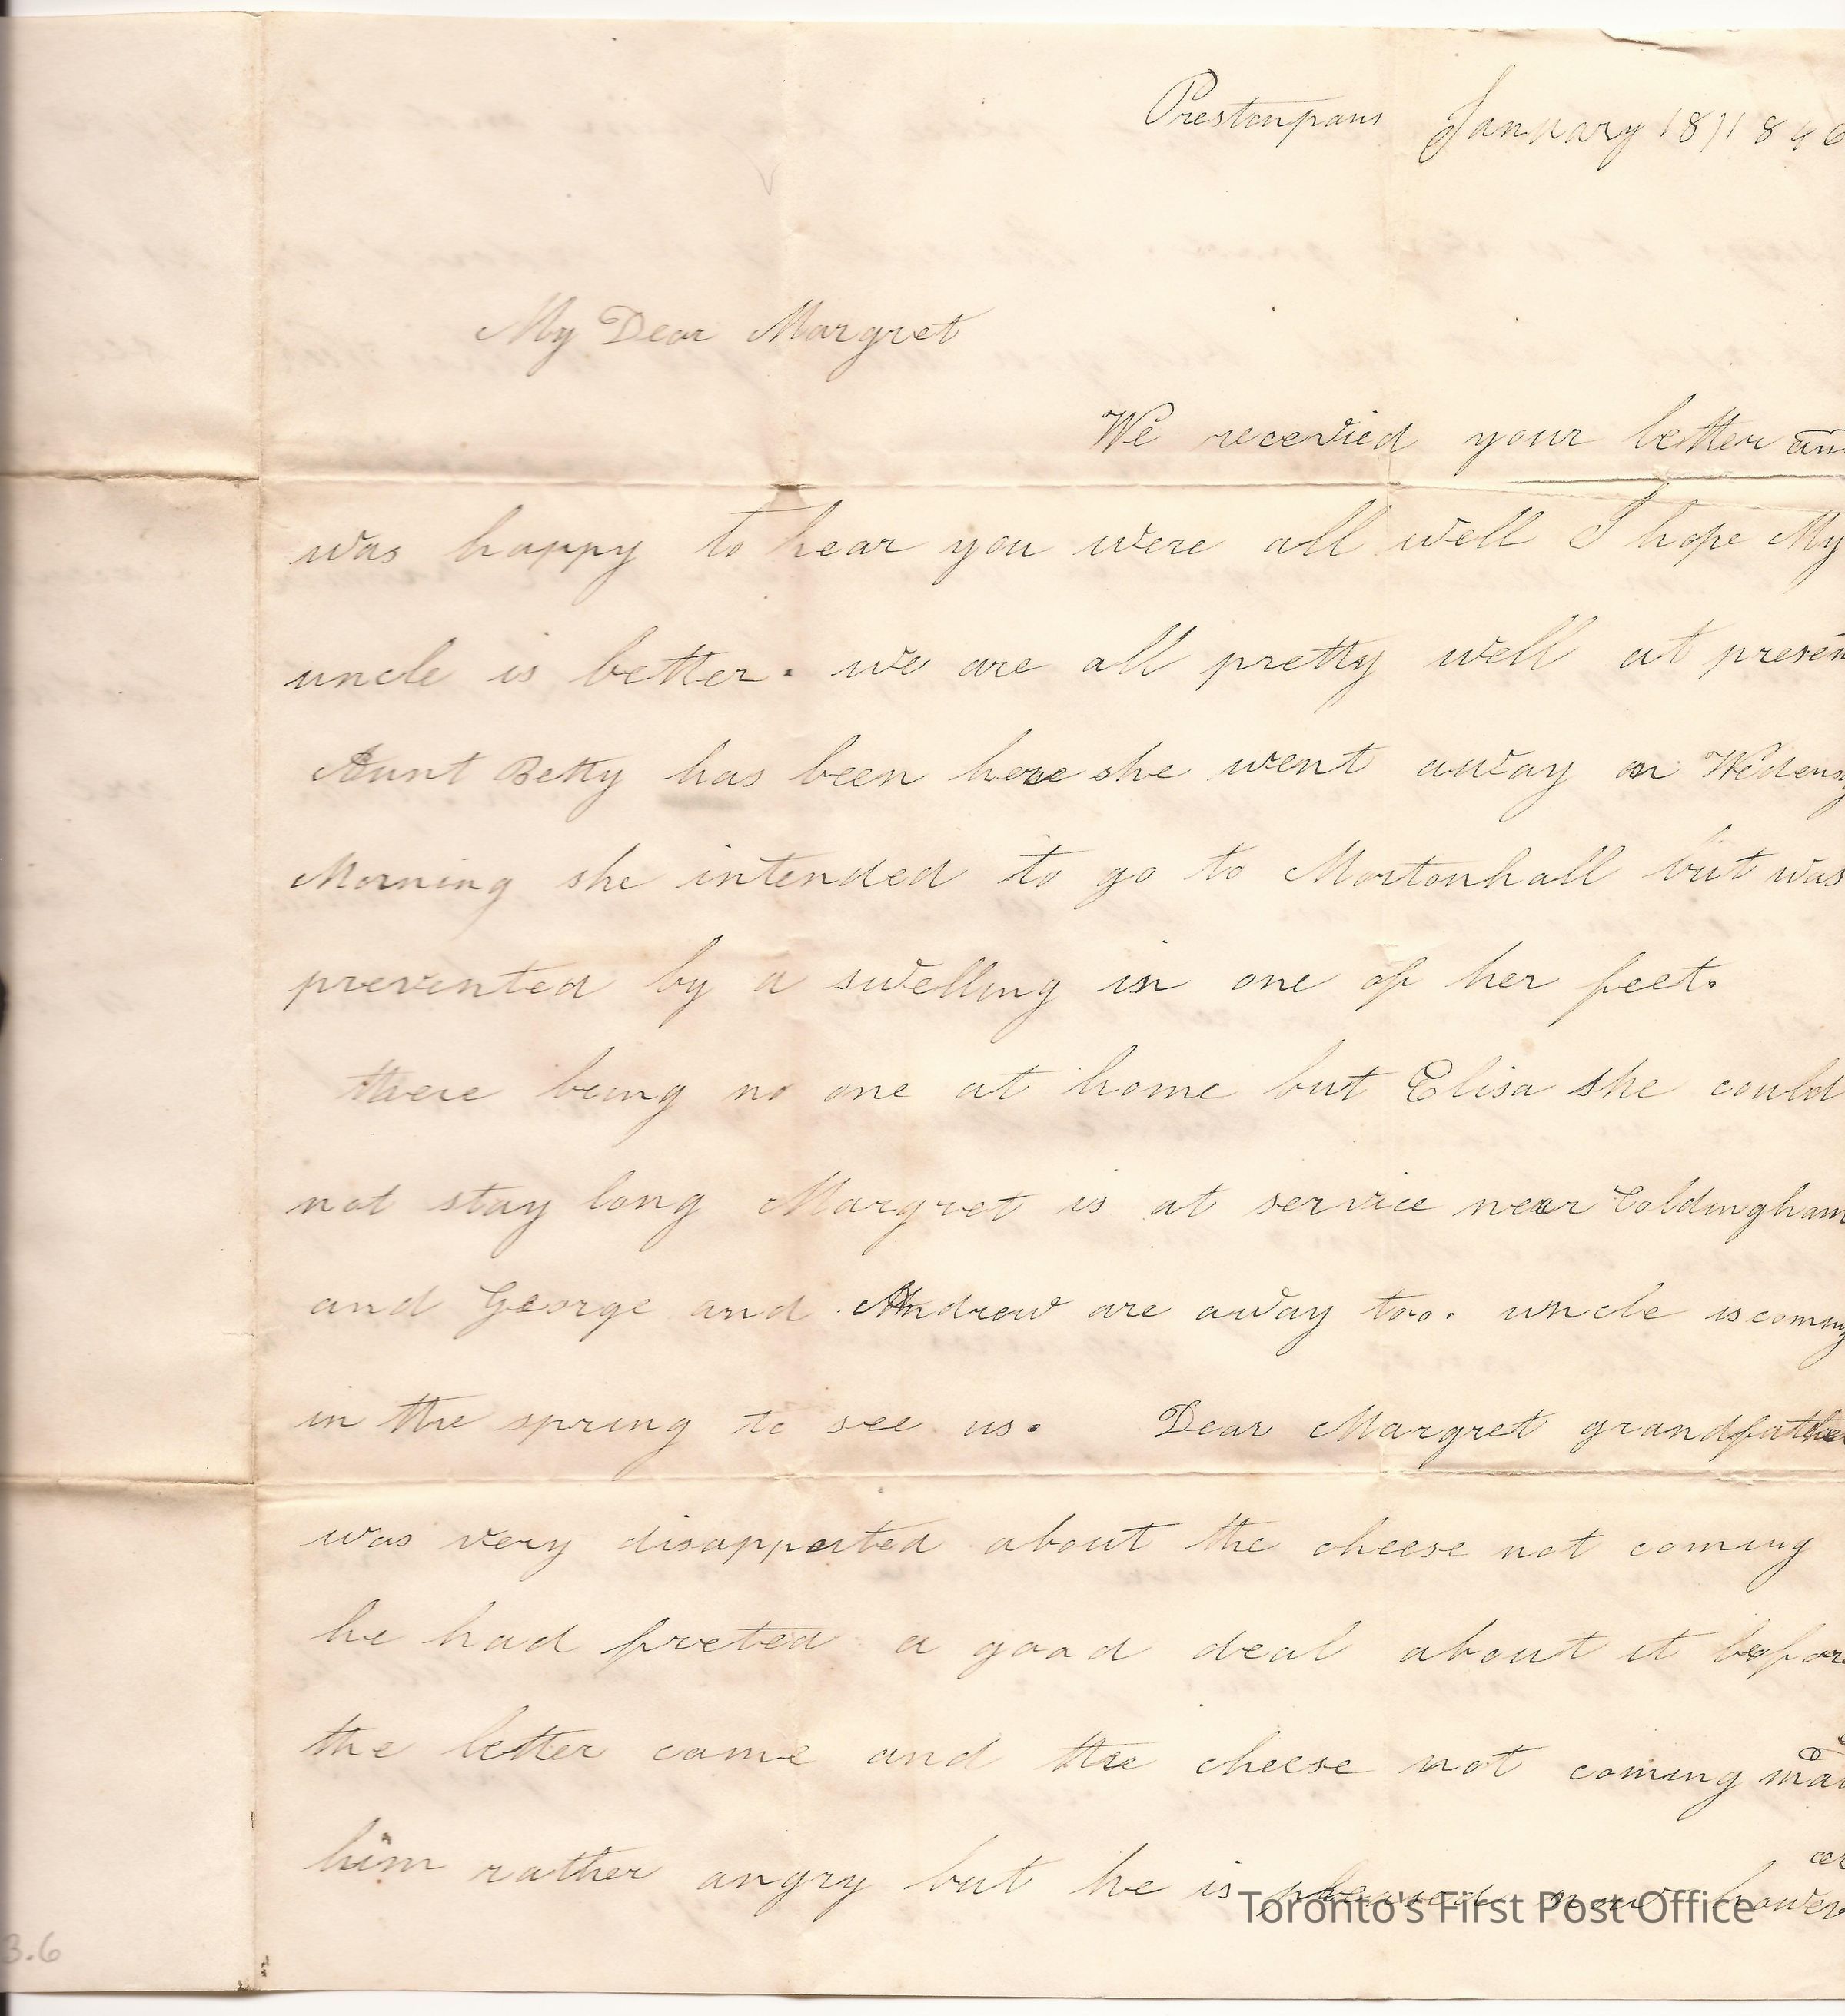 Prestonpans January 18/1846
My Dear Margret
We recevied your letter an
was happy to hear you were all well I hope My
uncle is better. we are all pretty well at presen
Aunt Betty has been here she went away on Wedensy
Morning she intended to go to Mortonhall but was
prevented by a swelling in one of her feet.
there being no one at home but Elisa she could
not stay long Margret is at service near Coldingham
and George and Andrew are away too. uncle is coming
in the spring to see us. Dear Margret grandfather
was very disapponted about the cheese not coming
he had freted a good deal about it before
the letter came and the cheese not coming mad
him rather angry but he is pleased now howev
Toronto's First Post Office
3.6